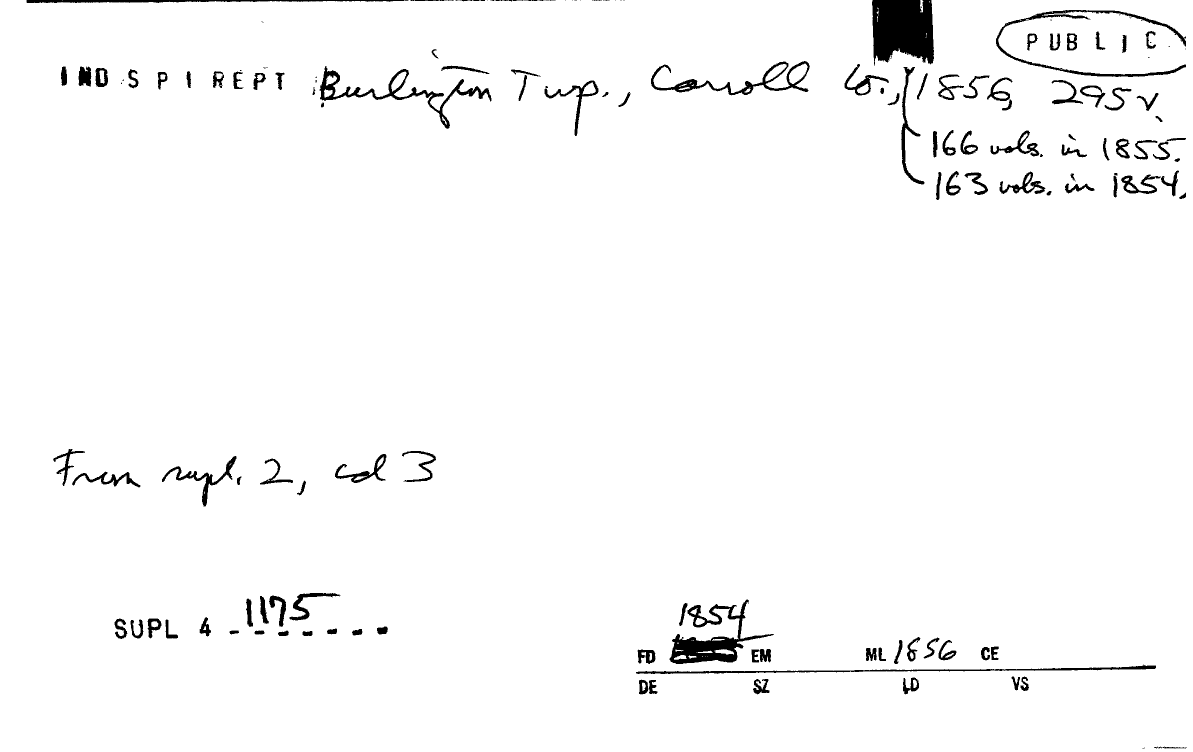 PUBLIC
INDSPIREPT Burlington Twp., Carroll Co., 1856, 295 v.
166 vols. in 1855.
163 vols. in 1854.
From supl. 2, col 3
SUPL 4 1175
1854
FD EM ML 1856 CE
DE SZ LD VS